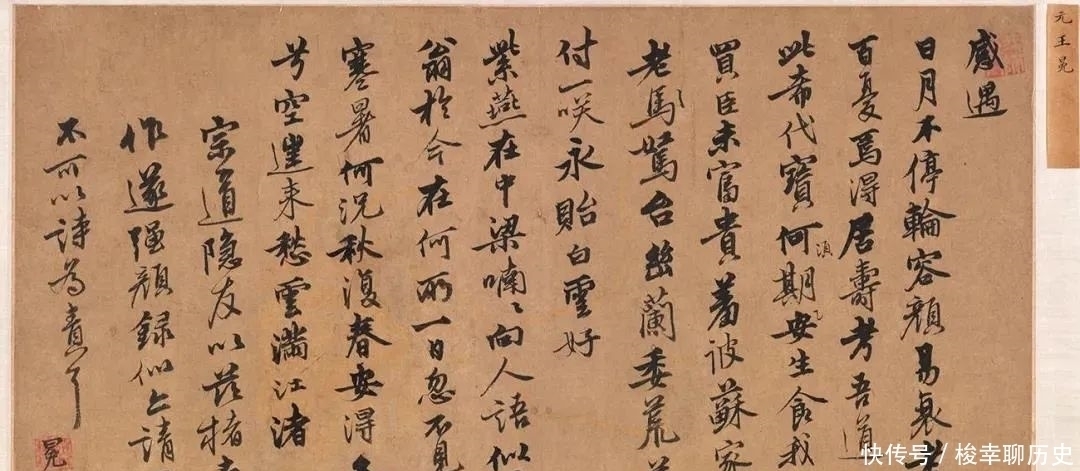 元王冕
感遇
日月不停輪容顏易衰
百憂焉得居壽考吾道
此希代寶何須期安生食我
買臣未富貴羞被蘇家
老馬駑台幽蘭委荒
付一咲永貽白雲好
紫燕在中梁喃〻向人語似
翁於今在何所一日忽不見
寒暑何況秋復春安得
兮空遲来愁雲滿江渚
宗道隐友以茲楮
作遂强顏録似上請
不可以詩為責了
冕
快传号/梭幸聊历史